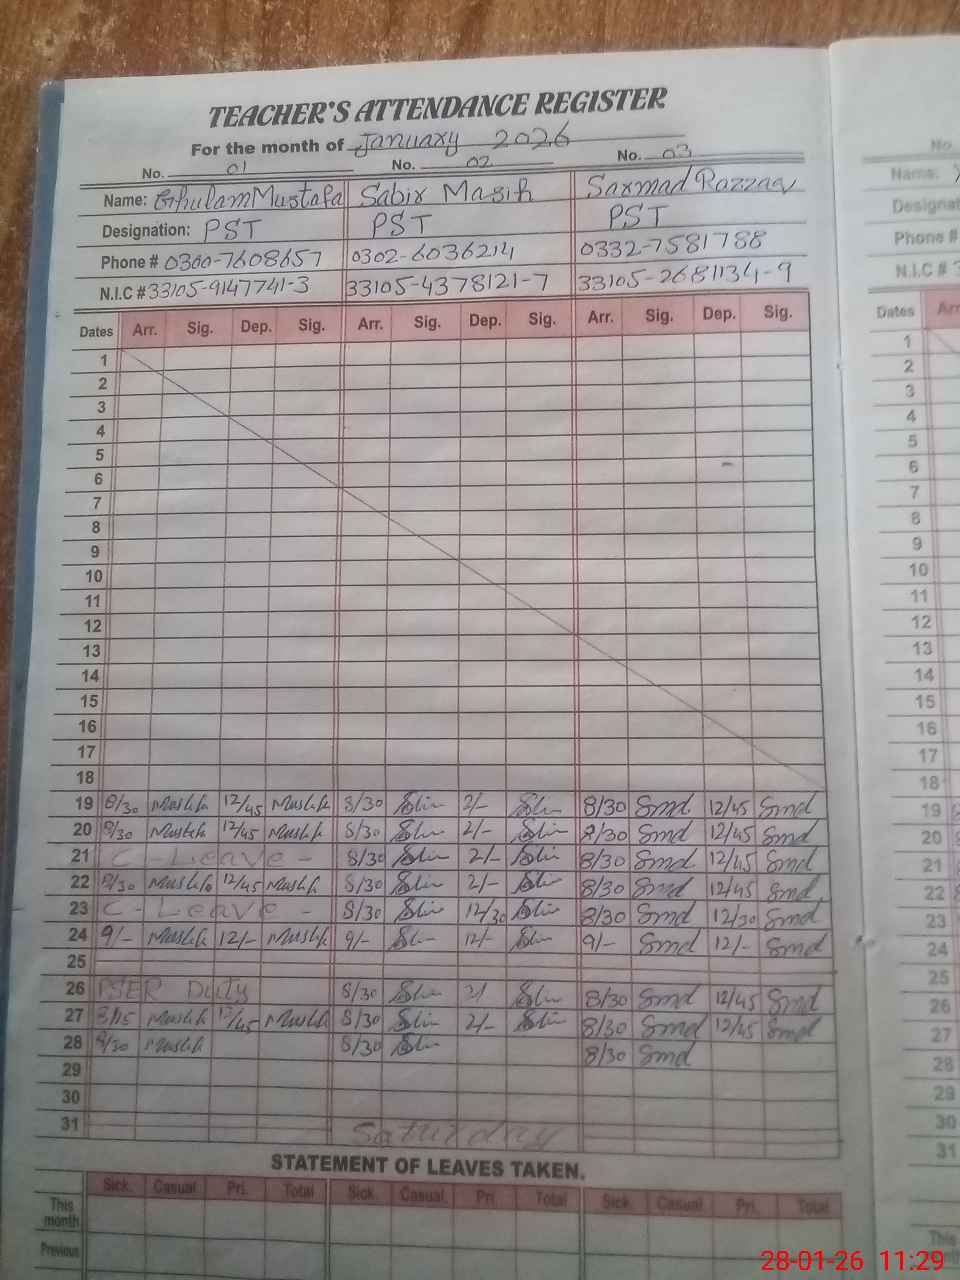 TEACHER'S ATTENDANCE REGISTER
For the month of January 2026
No. 01 No. 02 No. 03
Name: Ghulam Mustafa Sabir Masih Sarmad Razzaq
Designation: PST PST PST
Phone # 0300-7608657 0302-6036214 0332-7581788
N.I.C # 33105-9147741-3 33105-4378121-7 33105-2681134-9
Dates Arr. Sig. Dep. Sig. Arr. Sig. Dep. Sig. Arr. Sig. Dep. Sig.
1
2
3
4
5
6
7
8
9
10
11
12
13
14
15
16
17
18
19 8/30 12/45 8/30 2/- 8/30 Smd 12/45 Smd
20 8/30 12/45 8/30 2/- 8/30 Smd 12/45 Smd
21 C-Leave - 8/30 2/- 8/30 Smd 12/45 Smd
22 8/30 12/45 8/30 2/- 8/30 Smd 12/45 Smd
23 C-Leave - 8/30 12/30 8/30 Smd 12/30 Smd
24 9/- 12/- 9/- 12/- 9/- Smd 12/- Smd
25
26 PSER Duty 8/30 2/ 8/30 Smd 12/45 Smd
27 8/15 12/45 8/30 2/- 8/30 Smd 12/45 Smd
28 8/30 8/30 8/30 Smd
29
30
31 Saturday
STATEMENT OF LEAVES TAKEN.
Sick. Casual Pri. Total Sick. Casual. Pri. Total Sick. Casual. Pri. Total
This month
Previous
No.
Name:
Phone #
N.I.C #
Dates Arr
1
2
3
4
5
6
7
8
9
10
11
12
13
14
15
16
17
18
19
20
21
22
23
24
25
26
27
28
29
30
31
This
28-01-26 11:29